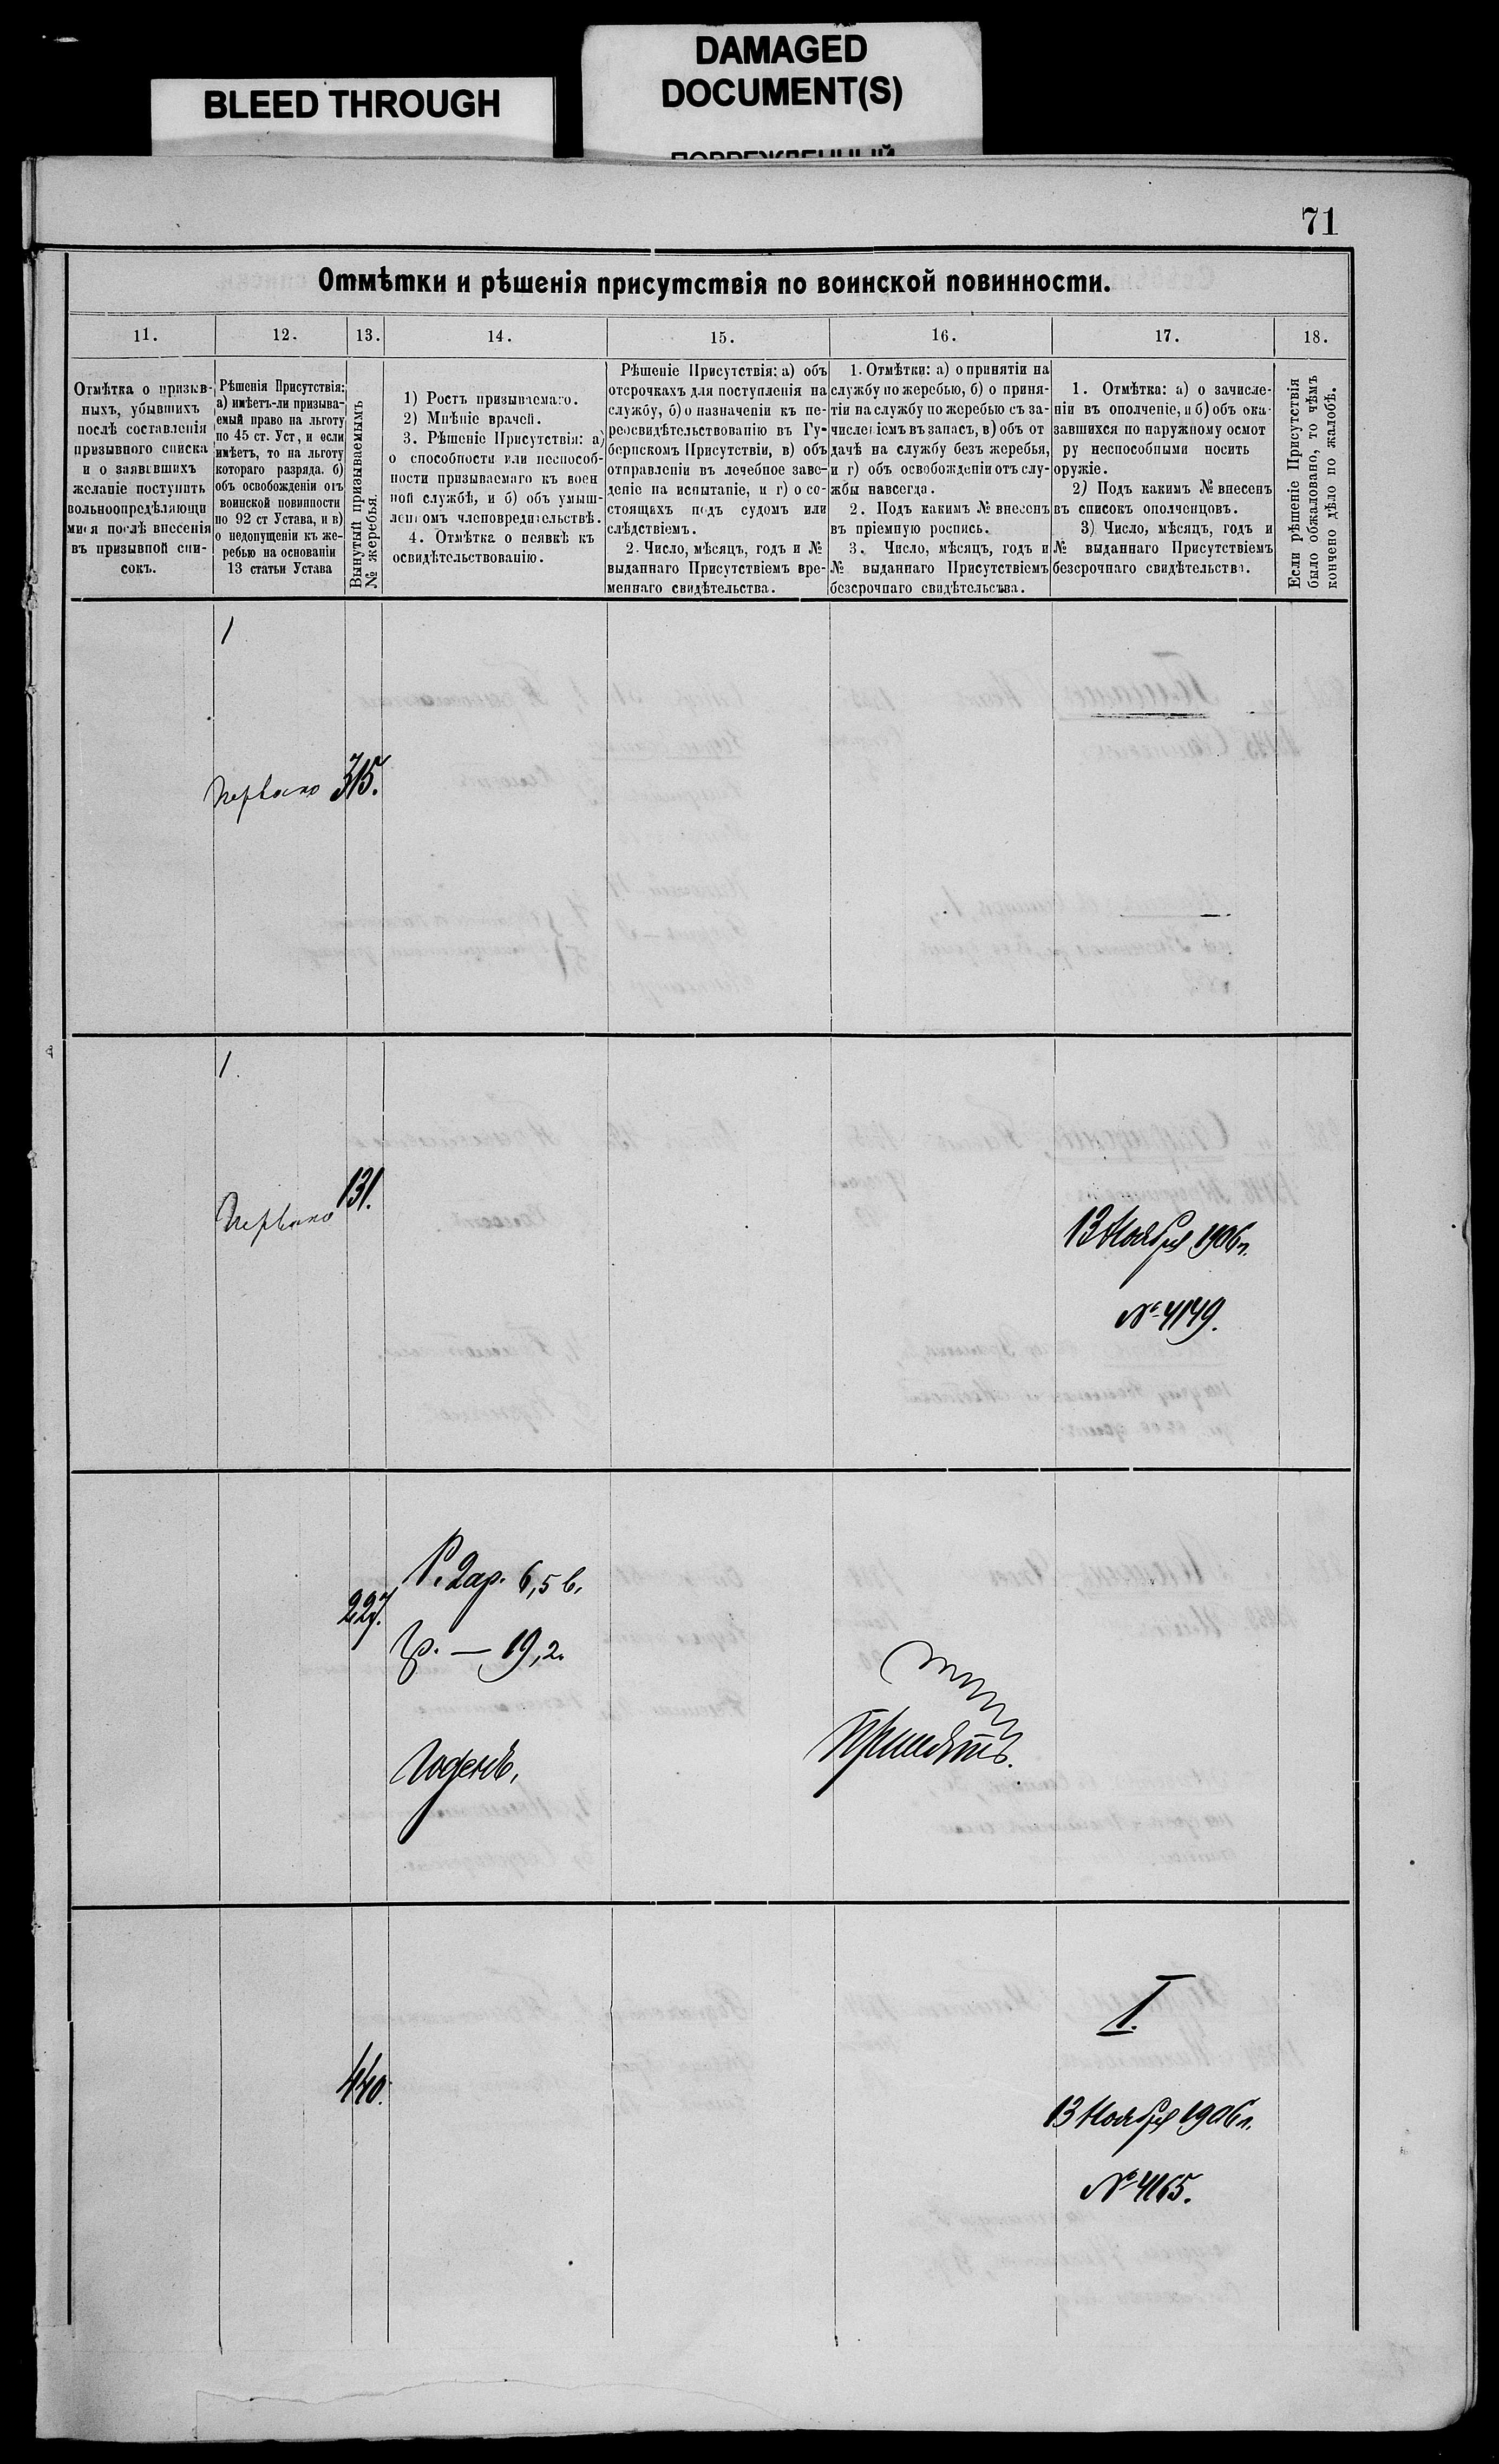 DAMAGED
DOCUMENT(S)
BLEED THROUGH
71
Отмѣтки и рѣшенія присутствія по воинской повинности.
11.
12.
13.
14.
15.
16.
17.
18.
Отмѣтка о призыв-
ныхъ, убывшихъ
послѣ составленія
призывного списка
и о заявившихъ
желаніе поступить
вольноопредѣляющи
мися послѣ внесенія
въ призывной спи-
сокъ.
Рѣшенія Присутствія:
а) имѣетъ-ли призыва-
емый право на льготу
по 45 ст. Уст, и если
имѣетъ, то на льготу
котораго разряда. б)
объ освобожденіи отъ
воинской повинности
по 92 ст Устава, и в)
о недопущеніи къ же-
ребью на основаніи
13 статьи Устава
Вынутый призываемымъ
№ жеребья.
1) Ростъ призываемаго.
2) Мнѣніе врачей.
3. Рѣшеніе Присутствія: а)
о способности или неспособ-
ности призываемаго къ воен
ной службѣ, и б) объ умыш-
леномъ членовредительствѣ.
4. Отмѣтка о неявкѣ къ
освидѣтельствованію.
Рѣшеніе Присутствія: а) объ
отсрочкахъ для поступленія на
службу, б) о назначеніи къ пе-
реосвидѣтельствованію въ Гу-
бернскомъ Присутствіи, в) объ
отправленіи въ лечебное заве-
деніе на испытаніе, и г) о со-
стоящихъ подъ судомъ или
слѣдствіемъ.
2. Число, мѣсяцъ, годъ и №
выданнаго Присутствіемъ вре-
меннаго свидѣтельства.
1. Отмѣтки: а) о принятіи на
службу по жеребью, б) о приня-
тіи на службу по жеребью съ за-
численіемъ въ запасъ, в) объ от
дачѣ на службу безъ жеребья,
и г) объ освобожденіи отъ слу-
жбы навсегда.
2. Подъ какимъ № внесенъ
въ пріемную роспись.
3. Число, мѣсяцъ, годъ и
№ выданнаго Присутствіемъ
безсрочнаго свидѣтельства.
1. Отмѣтка: а) о зачисле-
ніи въ ополченіе, и б) объ ока-
завшихся по наружному осмот
ру неспособными носить
оружіе.
2) Подъ какимъ № внесенъ
въ списокъ ополченцовъ.
3) Число, мѣсяцъ, годъ и
№ выданнаго Присутствіемъ
безсрочнаго свидѣтельства.
Если рѣшеніе Присутствія
было обжаловано, то чѣмъ
кончено дѣло по жалобѣ.
1
315.
1
131.
13 Ноября 1906 г.
№ 4149.
227.
Р. 2 ар. 6,5 в.
гр. — 19,2.
Годенъ.
Принятъ.
440.
I.
13 Ноября 1906 г.
№ 4165.